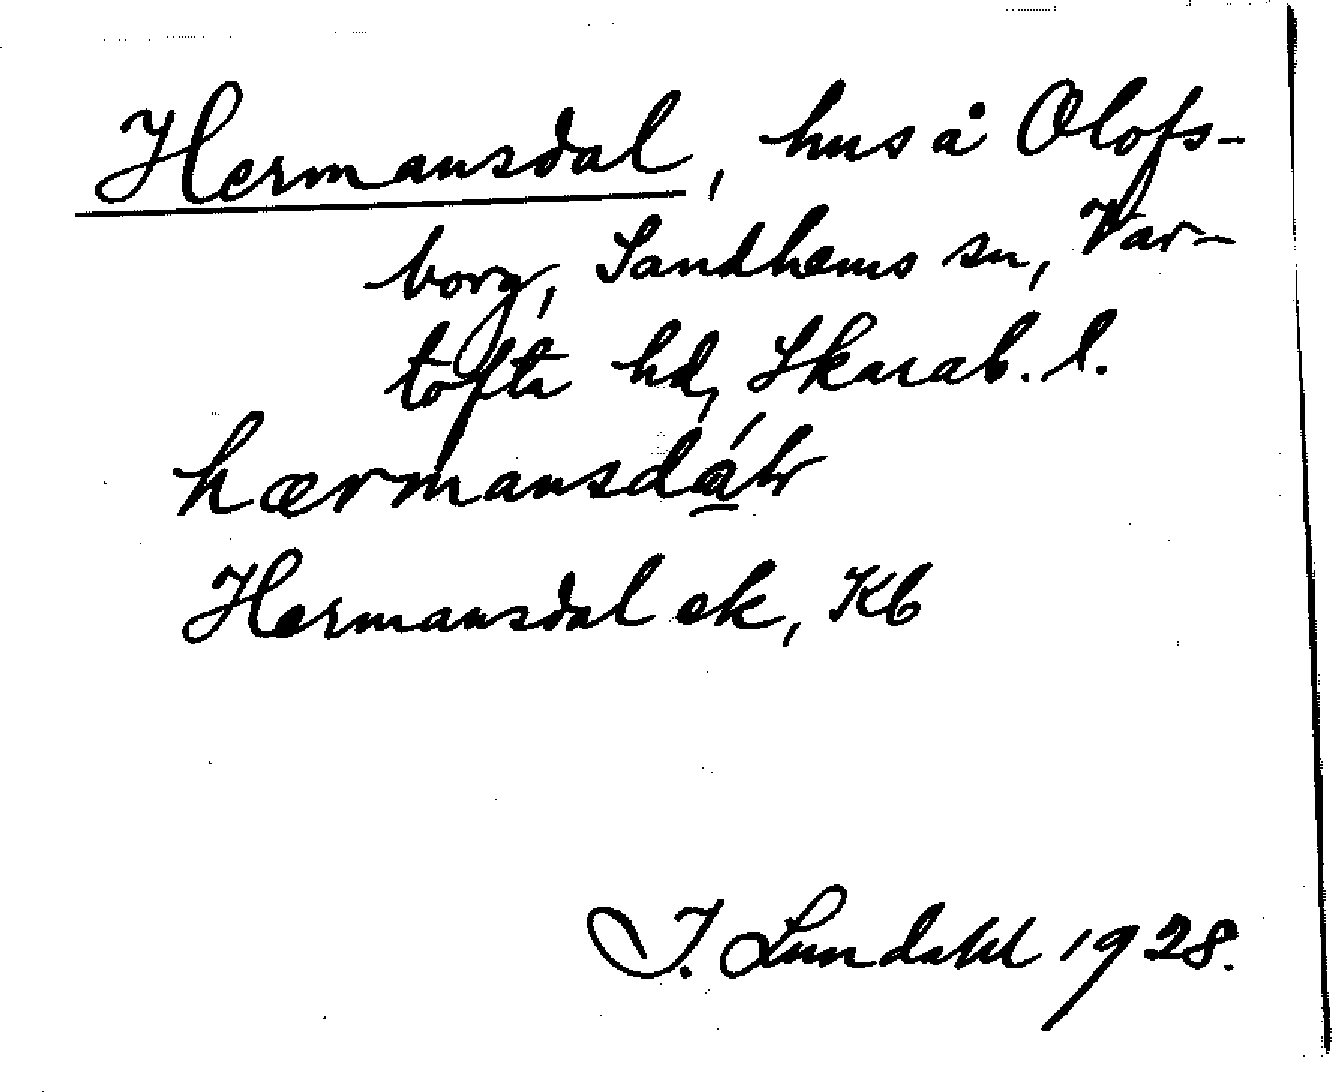 Hermansdal, hus å Olofs-
borg, Sandhems sn, Var-
tofta hd, Skarab. l.
hærmansdá̱lr
Hermansdal ek, Kb
I. Lundahl 1928.